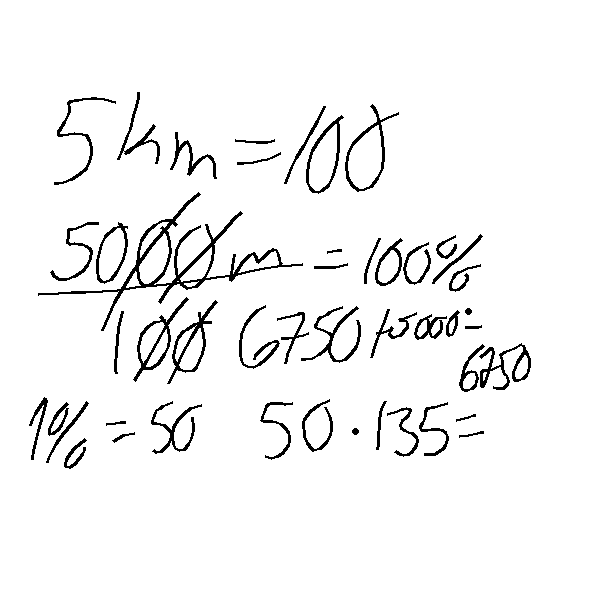 5km=100
5000m=100%
100 6750+5000=
6750
1%=50 50·135=